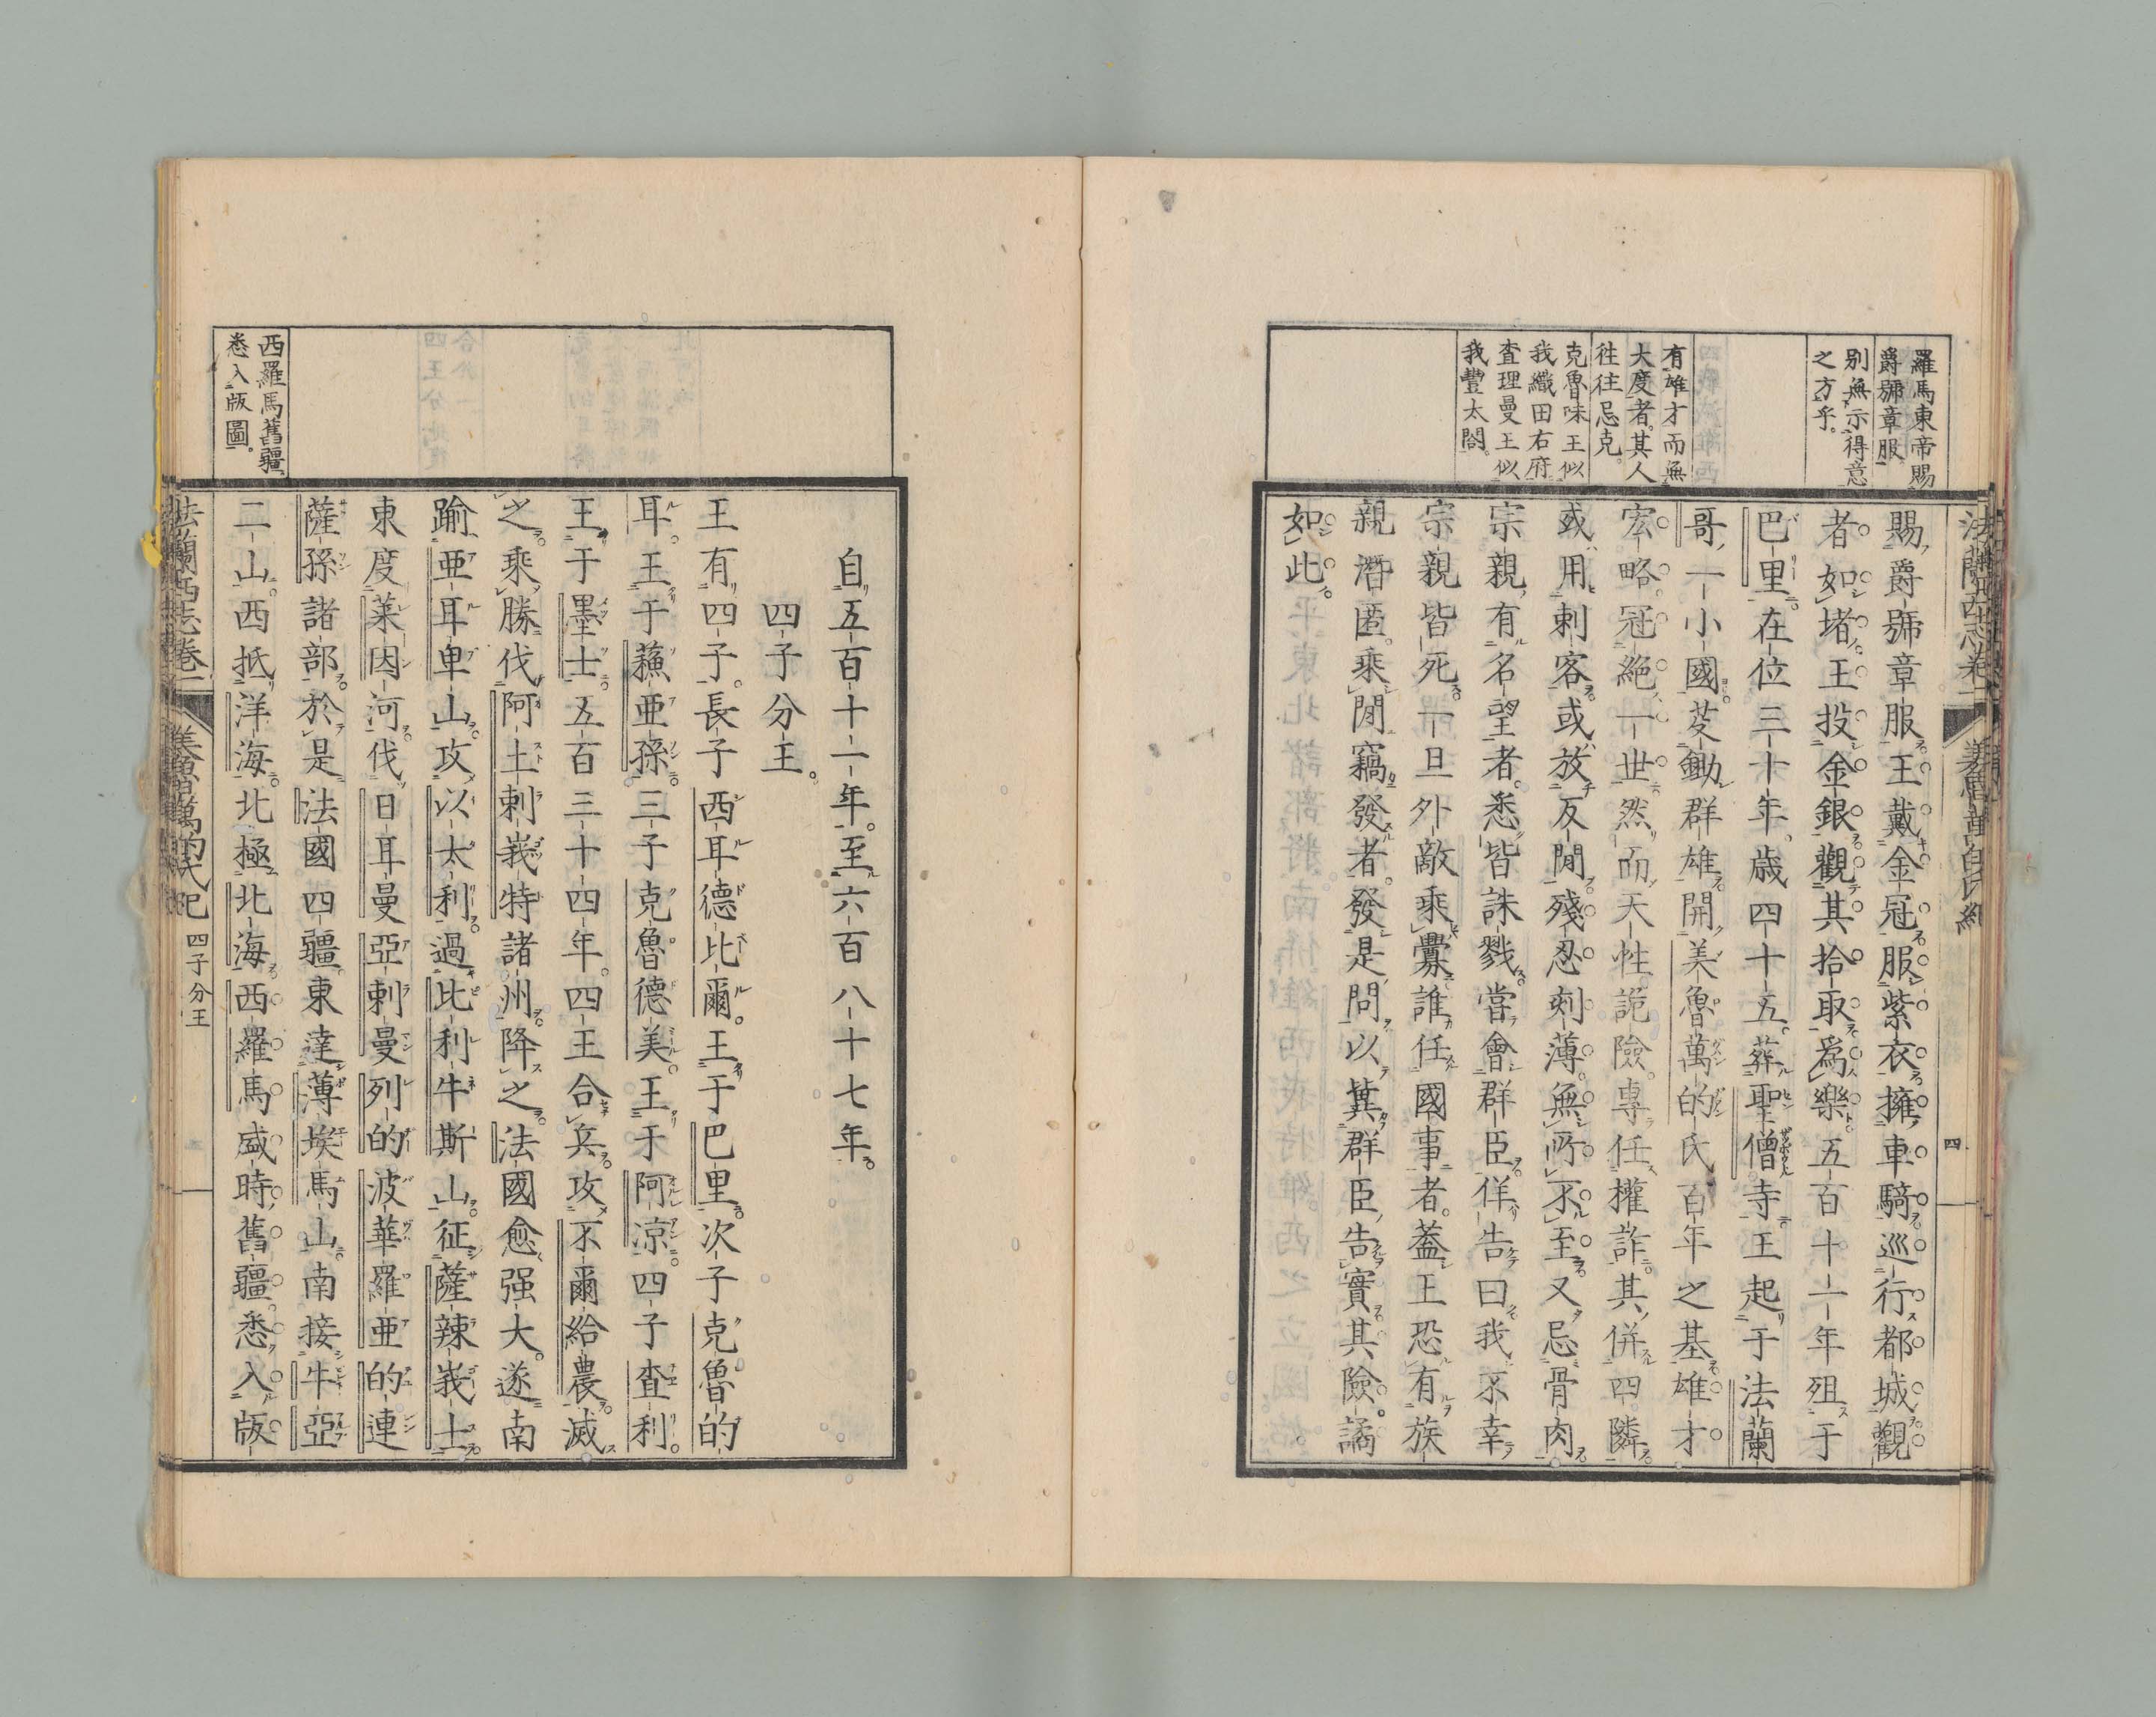 羅馬東帝賜
爵號章服
別無示得意
之方乎。
有雄才而無
大度者。其人
往往忌克。
克魯味王似
我織田右府
査理曼王似
我豐太閤。
法蘭西志卷二
四
賜爵號章服。王戴金冠。服紫衣。擁車騎。巡行都城。觀
者如堵。王投金銀。觀其拾取爲樂。五百十一年殂于
巴里。在位三十年。歲四十五。葬聖僧寺。王起于法蘭
哥一小國。芟鋤群雄。開美魯萬的氏百年之基。雄才
宏略。冠絕一世。然而天性詭險。專任權詐。其併四隣。
或用刺客。或放反間。殘忍刻薄。無所不至。又忌骨肉
宗親有名望者。悉皆誅戮。當會群臣。佯告曰。我不幸
宗親皆死。一旦外敵乘釁。誰任國事者。蓋王恐有族
親潛匿。乘間竊發者。發是問。以冀群臣告實。其險譎
如此。
自五百十一年。至六百八十七年。
四子分王。
王有四子。長子西耳德比爾。王于巴里。次子克魯的
耳。王于蘓亜孫。三子克魯德美。王于阿涼。四子査利。
王于墨士。五百三十四年。四王合兵。攻不爾給農。滅
之。乘勝伐阿土剌峩特諸州。降之。法國愈强大。遂南
踰亜耳卑山。攻以太利。過比利牛斯山。征薩辣峩士。
東度萊因河。伐日耳曼亞剌曼列的波華羅亜的連
薩孫諸部。於是法國四疆。東達薄埃馬山。南接牛亞
二山。西抵洋海。北極北海。西羅馬盛時舊疆。悉入版
西羅馬舊疆。
悉入版圖。
法蘭西志卷二
美魯萬的氏紀
四子分王